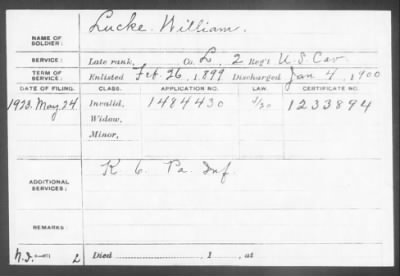 NAME OF SOLDIER: Lucke William.
SERVICE: Late rank, Co. L, 2 Reg't U.S. Cav.
TERM OF SERVICE: Enlisted Feb. 26, 1899 Discharged Jan 4, 1900
DATE OF FILING. CLASS. APPLICATION NO. LAW. CERTIFICATE NO.
1923, May, 24. Invalid, 1484430 1233894
Widow,
Minor,
ADDITIONAL SERVICES: K 6. Pa. Inf.
REMARKS:
Died , 1 , at